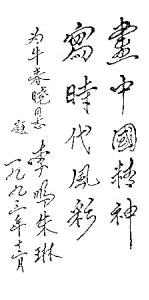 畫中國精神
寫時代風彩
为牛春晓君
題
李鳴朱琳
一九九三年十二月